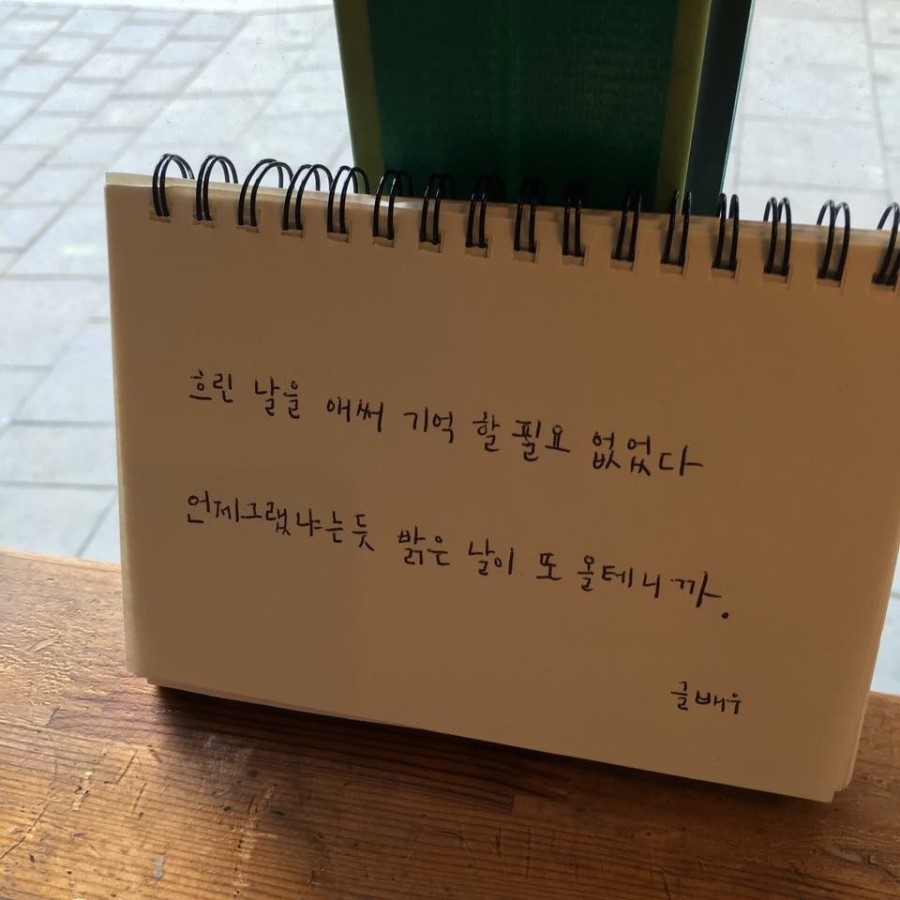 흐린 날을 애써 기억 할 필요 없었다
언제그랬냐는듯 밝은 날이 또 올테니까.
글배우